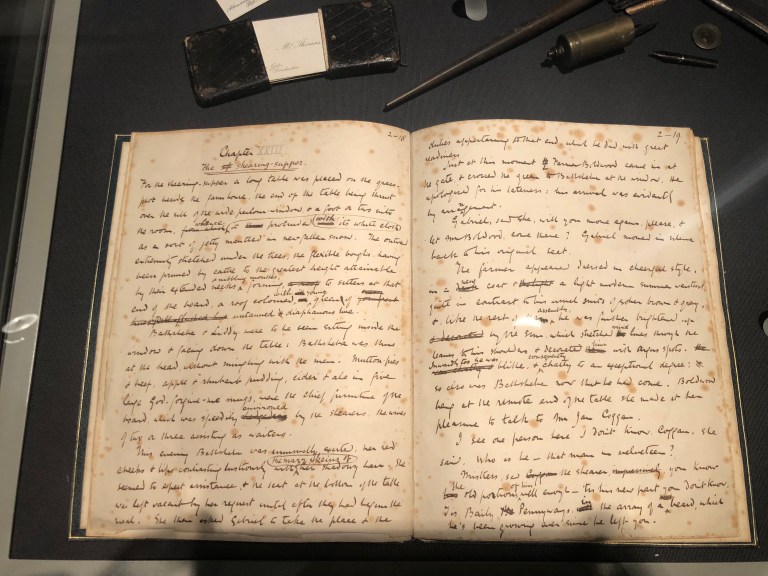 Mr. Thomas
2-18
Chapter XXIII
The shearing-supper.
For the shearing-supper a long table was placed on the grass-
plot beside the farm house, the end of the table being thrust
over the sill of the wide parlour window, & a foot or two into
the room, whence protruded its white cloth
as a sort of jetty mantled in new-fallen snow. The outer
extremity stretched under the trees, the flexible boughs, having
been pruned by cattle to the greatest height attainable
by their extended necks & nibbling mouths, forming to sitters at that
end of the board, a roof coloured with a young
untanned & diaphanous
Bathsheba & Liddy were to be seen sitting inside the
window & facing down the table: Bathsheba was thus
at the head without mingling with the men. Mutton-pies
& beef, apple & rhubarb pudding, cider & ale in five
large God-forgive-me mugs, were the chief furniture of the
board which was speedily environed by the shearers, the wives
of two or three assisting as waiters.
This evening Bathsheba was unusually excited, her red
cheeks & lips contrasting lustrously with the mazy skeins of her shadowy hair. She
seemed to expect assistance, & the seat at the bottom of the table
was left vacant by her request until after they had begun the
meal. She then asked Gabriel to take the place & the
2-19
duties appertaining to that end, which he did with great
readiness
Just at this moment Farmer Boldwood came in at
the gate, & crossed the green to Bathsheba at the window. He
apologized for his lateness: his arrival was evidently
by arrangement.
Gabriel, said she, will you move again, please, &
let Mr. Boldwood come there? Gabriel moved in silence
back to his original seat.
The farmer appeared dressed in cheerful style,
in a new coat & a light modern summer waistcoat,
quite in contrast to his usual suits of sober brown & grey,
& like the rest of the assembly he was further brightened up
by the sun, which stretched lines through the
leaves to his shoulders & decorated him with Argus spots.
Inwardly too he was blithe, & consequently chatty to an exceptional degree:
so also was Bathsheba now that he had come. Boldwood
being at the remote end of the table she made it her
pleasure to talk to Mr. Jan Coggan.
I see one person here I don't know, Coggan, she
said. Who is he — that man in velveteen?
Mistress, said the shearer you know
The old portion of him well enough — 'tis his new part you don't know.
'Tis Baily Pennyways, in the array of a beard, which
he's been growing ever since he left you.